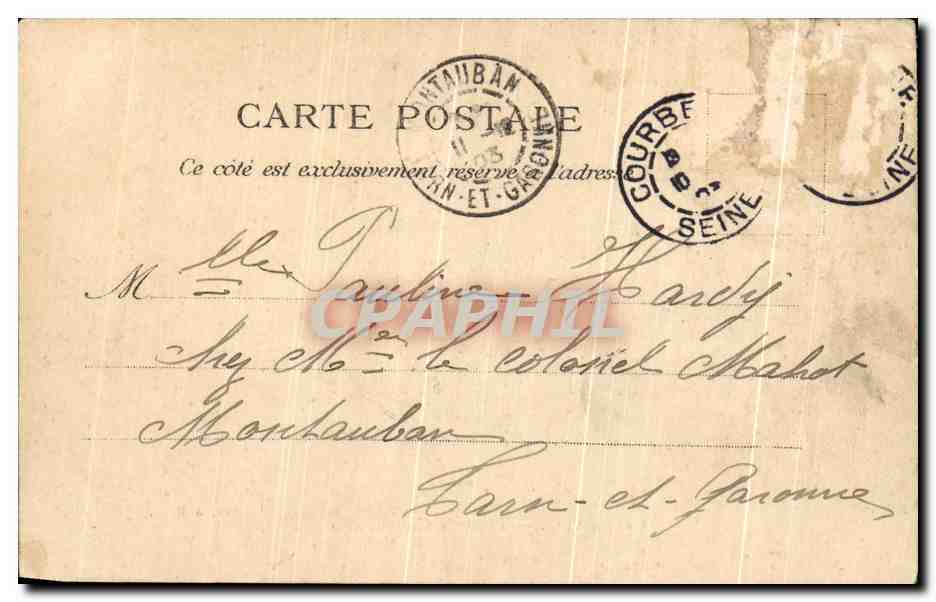 MONTAUBAN
11
03
TARN-ET-GARONNE
COURBE
SEINE
SEINE
CARTE POSTALE
Ce côté est exclusivement réservé à l'adresse
Mlle Pauline Hardy
chez Mr le colonel Mahot
Montauban
Tarn-et-Garonne
CPAPHIL